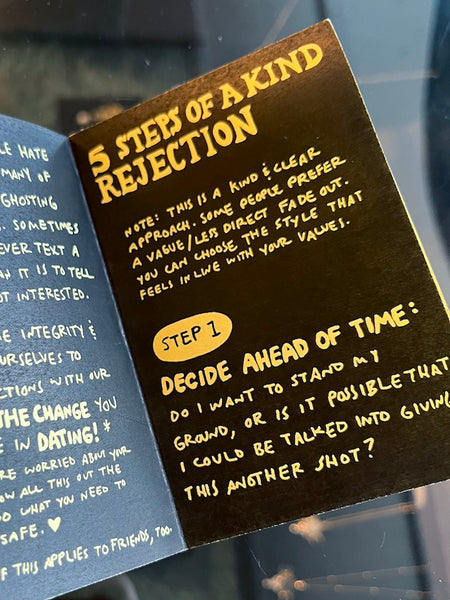 LE HATE
MANY OF
GHOSTING
SOMETIMES
EVER TEXT A
IT IS TO TELL
INTERESTED.
INTEGRITY &
OURSELVES TO
WITH OUR
THE CHANGE YOU
IN DATING! *
WORRIED ABOUT YOUR
ALL THIS OUT THE
DO WHAT YOU NEED TO
SAFE. ♥
OF THIS APPLIES TO FRIENDS, TOO.
5 STEPS OF A KIND
REJECTION
NOTE: THIS IS A KIND & CLEAR
APPROACH. SOME PEOPLE PREFER
A VAGUE/LESS DIRECT FADE OUT.
YOU CAN CHOOSE THE STYLE THAT
FEELS IN LINE WITH YOUR VALUES.
STEP 1
DECIDE AHEAD OF TIME:
DO I WANT TO STAND MY
GROUND, OR IS IT POSSIBLE THAT
I COULD BE TALKED INTO GIVING
THIS ANOTHER SHOT?